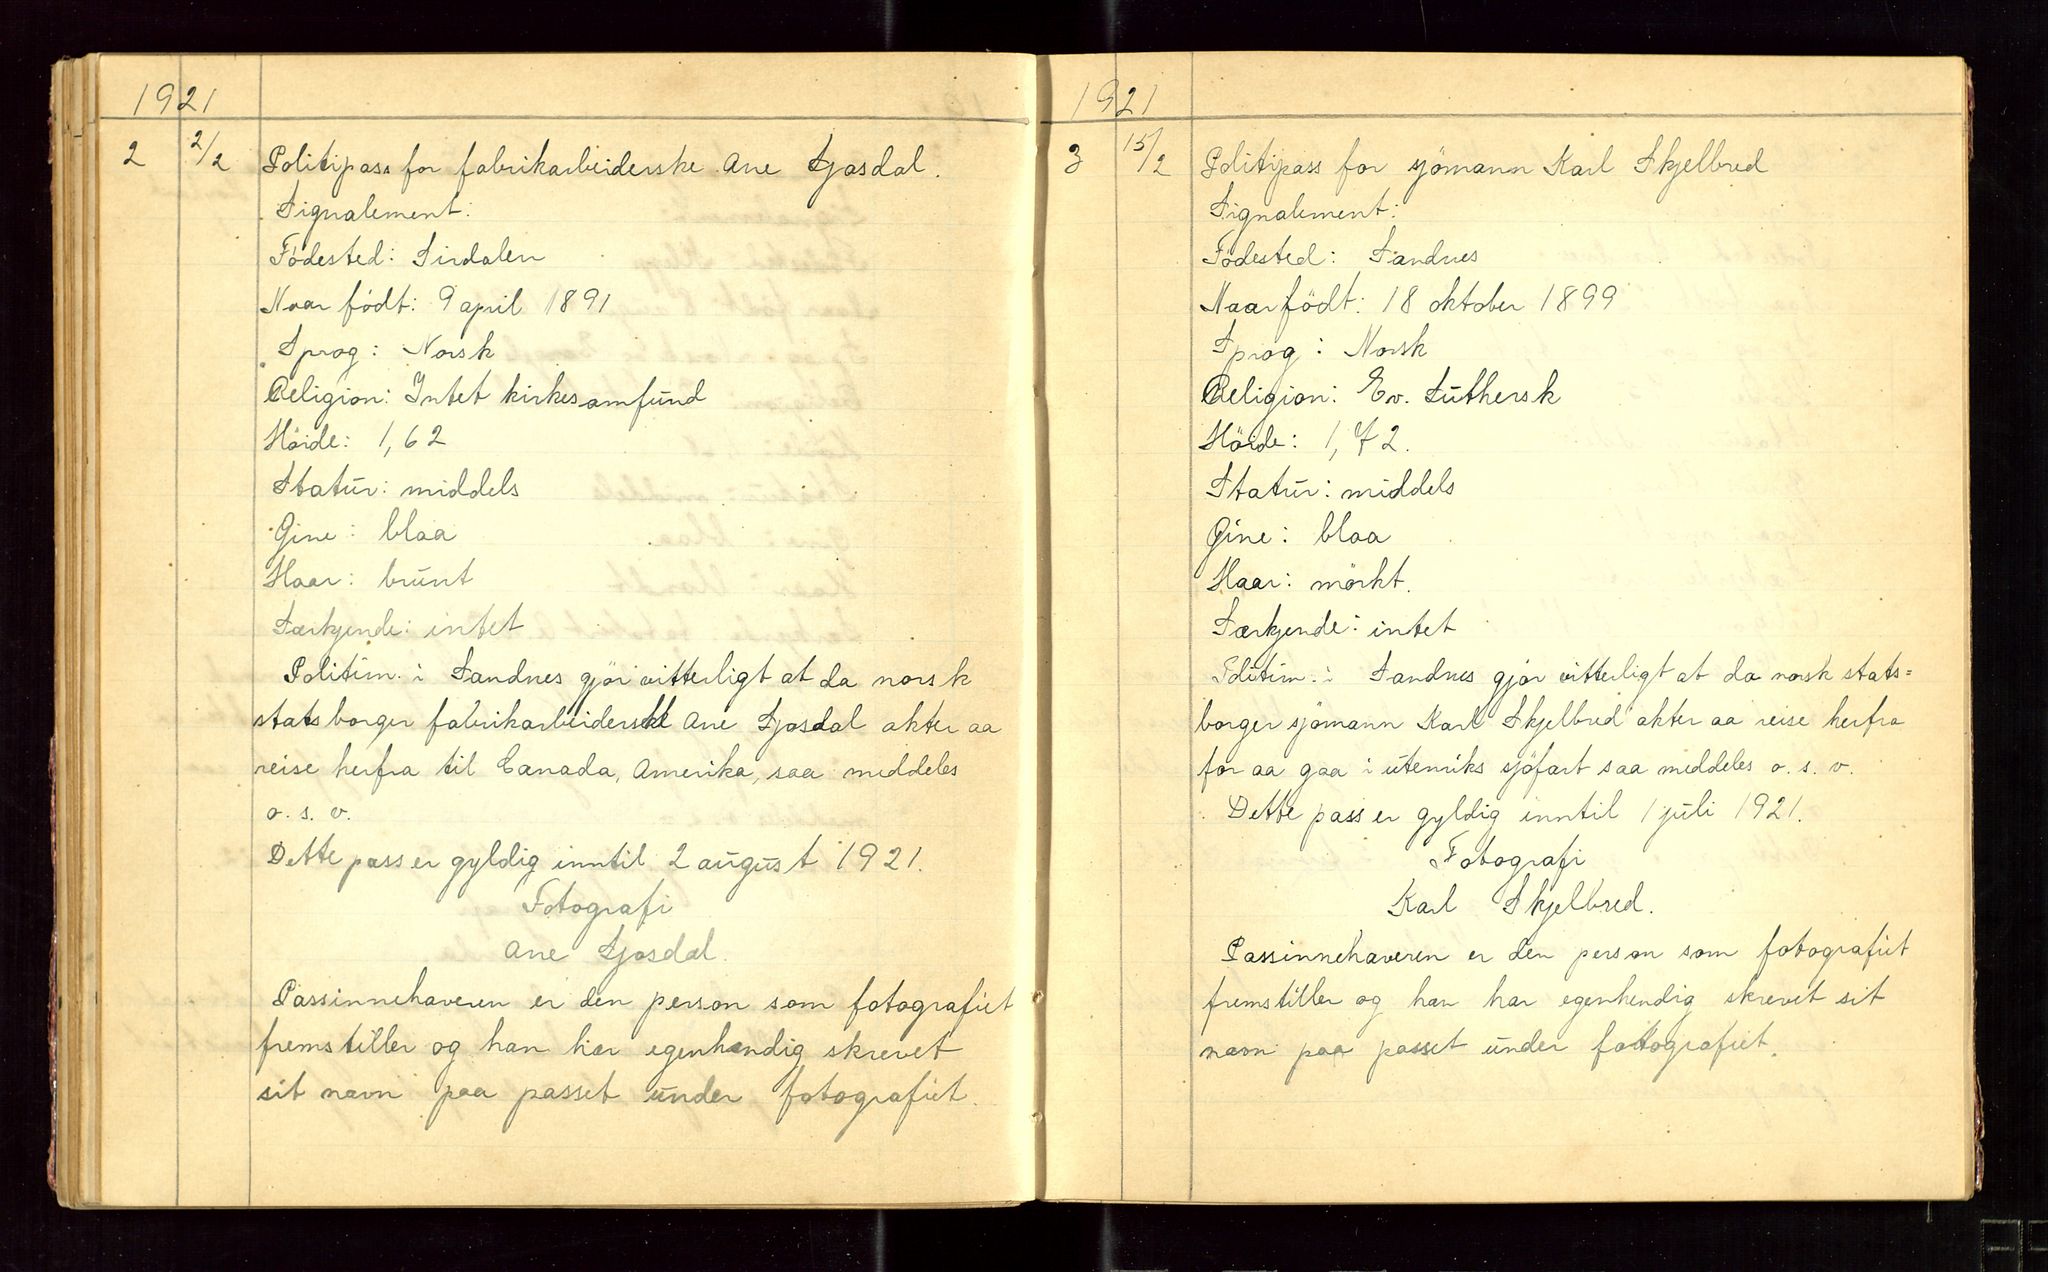 1921
2 2/2 Politipass for fabrikarbeiderske Ane Gjosdal.
Signalement:
Födested: Sirdalen
Naar födt: 9 april 1891
Sprog: Norsk
Religion: Intet kirkesamfund
Höide: 1,62
Statur: middels
Öine: blaa
Haar: brunt
Særkjende: intet
Politim. i Sandnes gjör vitterligt at da norsk
statsborger fabrikarbeiderske Ane Gjosdal akter aa
reise herfra til Canada, Amerika, saa meddeles
o. s. v.
Dette pass er gyldig inntil 2 august 1921.
Fotografi
Ane Gjosdal.
Passinnehaveren er den person som fotografiet
fremstiller og han har egenhendig skrevet
sit navn paa passet under fotografiet.
1921
3 15/2 Politipass for sjömann Karl Skjelbred
Signalement:
Födested: Sandnes
Naar födt: 18 oktober 1899
Sprog: Norsk
Religion: Ev. Luthersk
Höide: 1,72.
Statur: middels
Öine: blaa
Haar: mörkt.
Særkjende: intet
Politim. i Sandnes gjör vitterligt at da norsk stats=
borger sjömann Karl Skjelbred akter aa reise herfra
for aa gaa i utenriks sjöfart saa meddeles o. s. v.
Dette pass er gyldig inntil 1 juli 1921.
Fotografi
Karl Skjelbred.
Passinnehaveren er den person som fotografiet
fremstiller og han har egenhendig skrevet sit
navn paa passet under fotografiet.